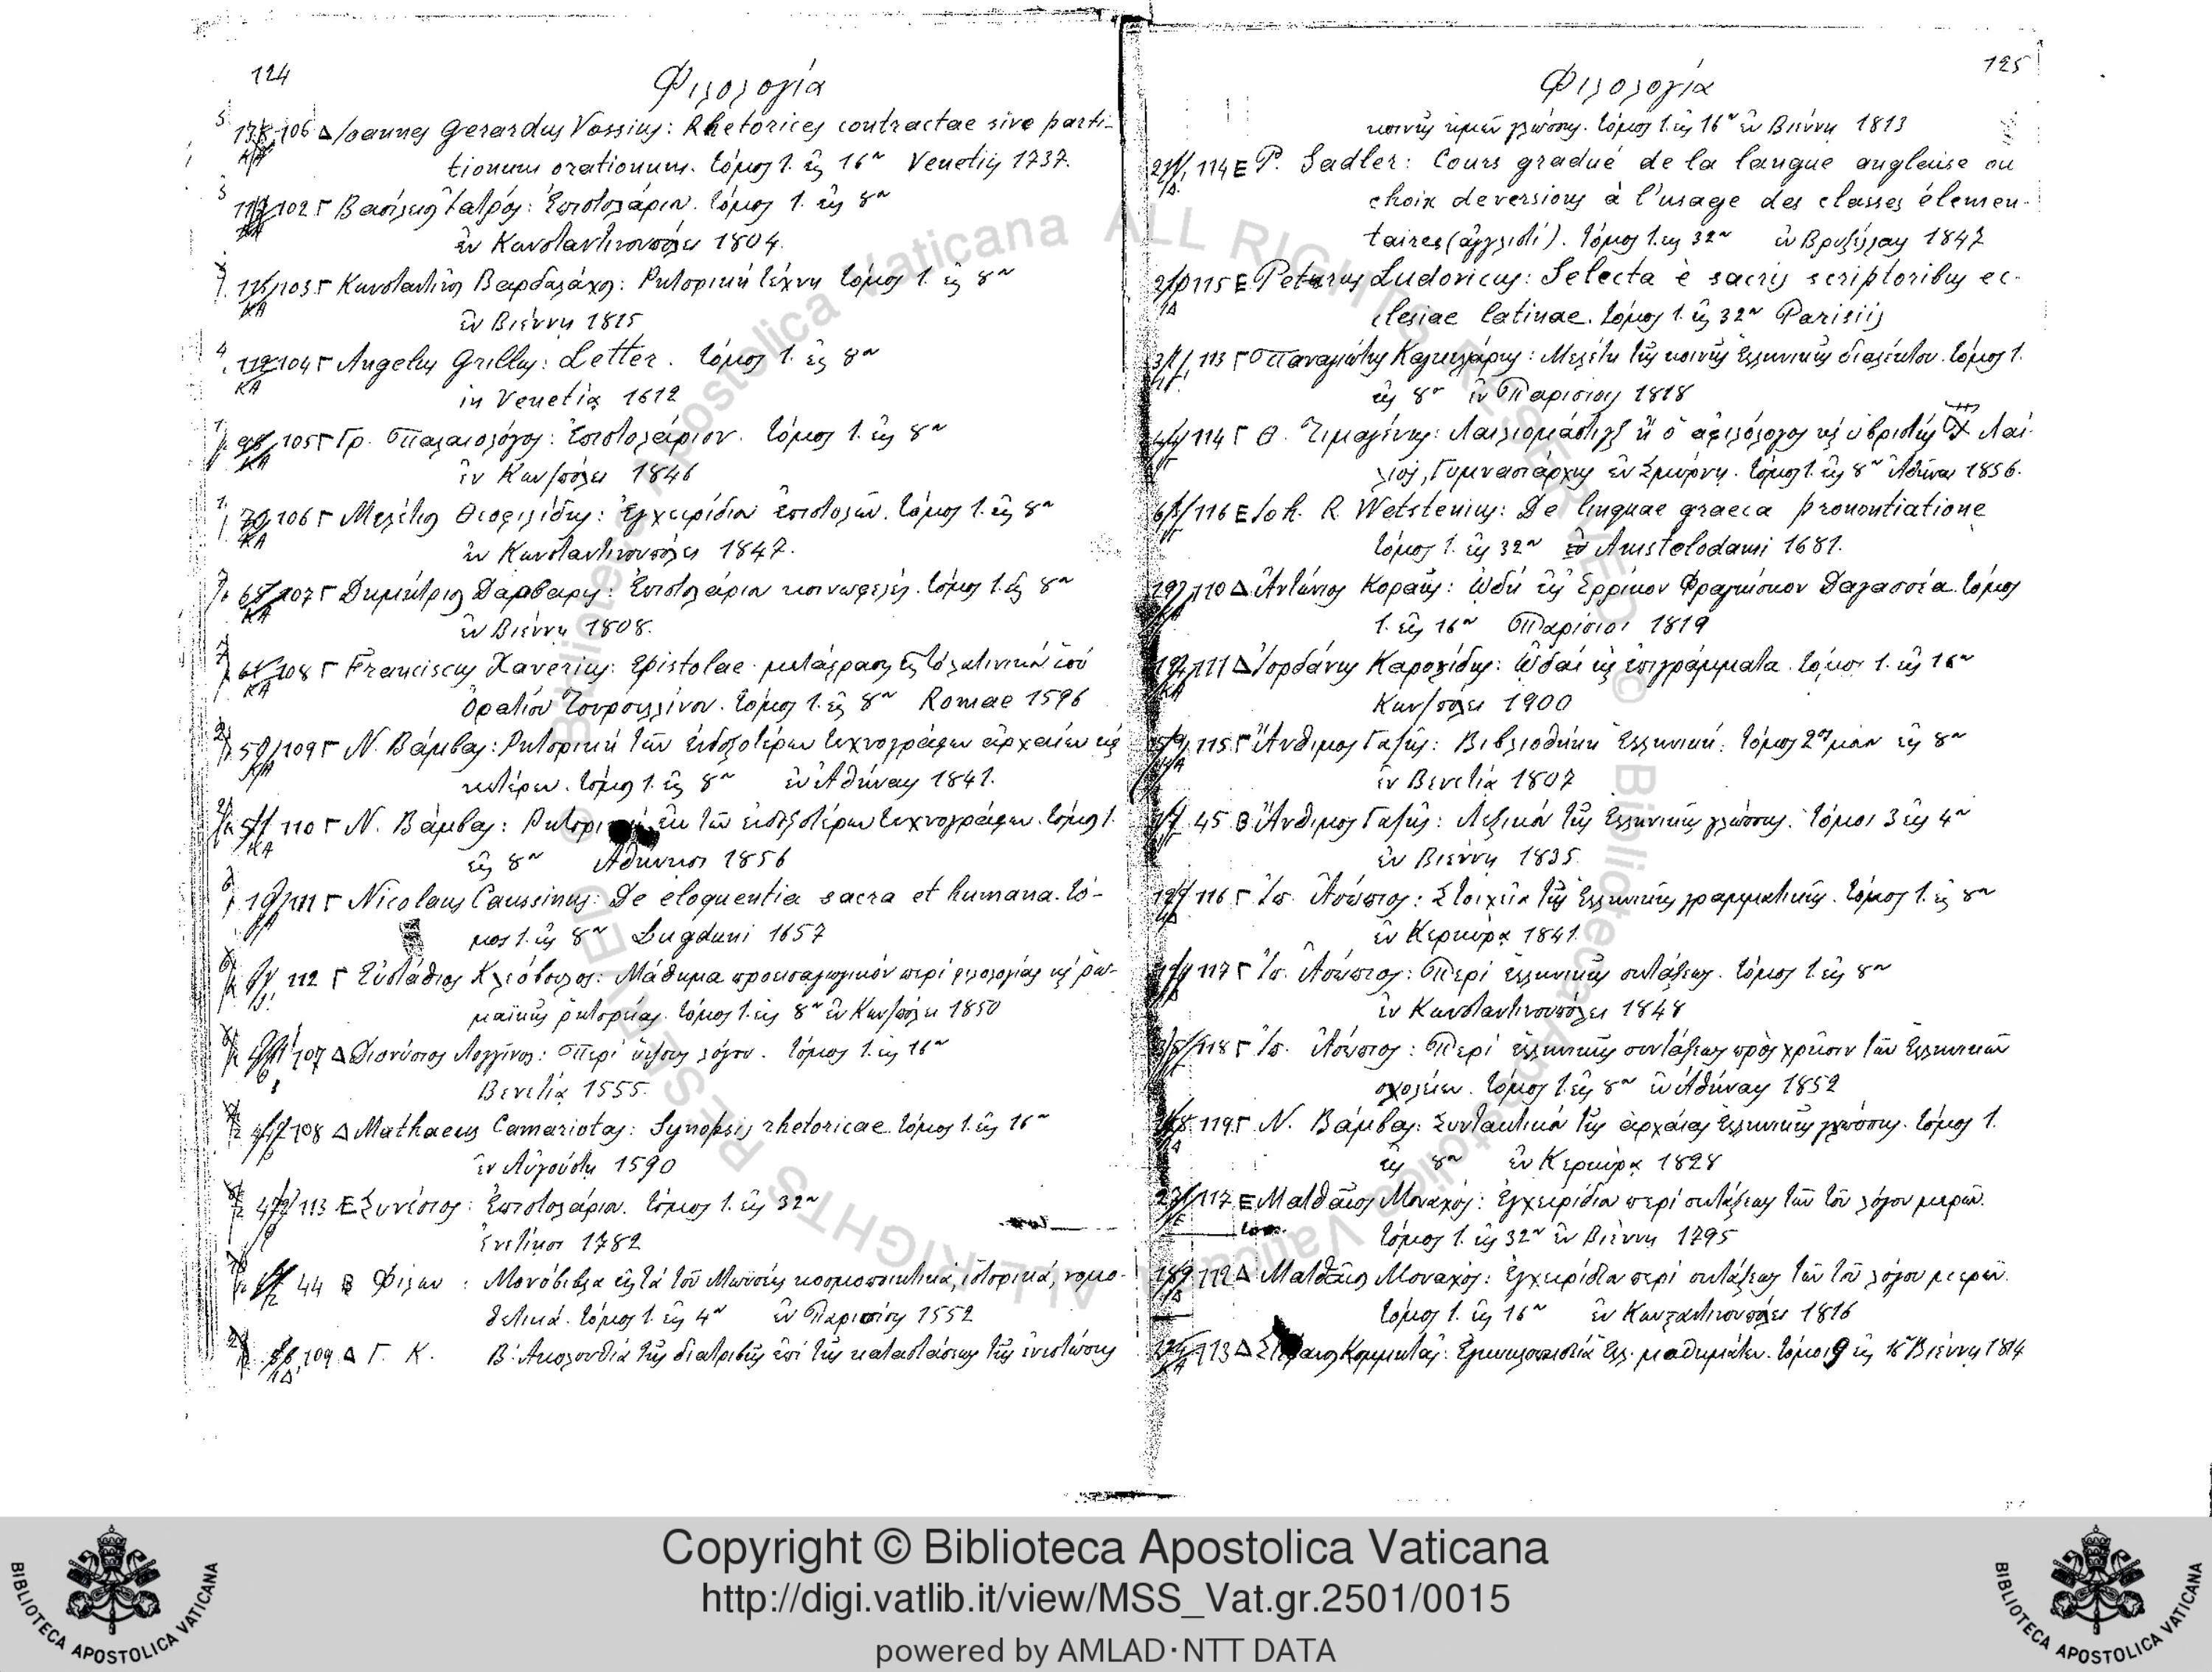 124
Φιλολογία
106 Δ Ioannes Gerardus Vossius: Rhetorices contractae sive parti-
tionum orationum. τόμος 1. εἰς 16ον Venetiis 1737.
102 Γ Βασίλειος Ἰατρός: Ἐπιστολάριον. τόμος 1. εἰς 8ον
ἐν Κωνσταντινουπόλει 1804.
103 Γ Κωνσταντῖνος Βαρδαλάχος: Ρητορική τέχνη τόμος 1. εἰς 8ον
ἐν Βιέννῃ 1815
104 Γ Angelus Grillus: Letter. τόμος 1. εἰς 8ον
in Venetia 1612
105 Γ Γρ. Παλαιολόγος: Ἐπιστολάριον. τόμος 1. εἰς 8ον
ἐν Κων/πόλει 1846
106 Γ Μελέτιος Θεοφιλίδης: Ἐγχειρίδιον ἐπιστολῶν. τόμος 1. εἰς 8ον
ἐν Κωνσταντινουπόλει 1847.
107 Γ Δημήτριος Δαρβαρις: Ἐπιστολάριον κοινωφελές. τόμος 1. εἰς 8ον
ἐν Βιέννῃ 1808.
108 Γ Franciscus Xaverius: Epistolae μετάφρασις εἰς τό λατινικόν ὑπό
Ὁρατίου Τουρσελλίνου. τόμος 1. εἰς 8ον Romae 1596
109 Γ Ν. Βάμβας: Ρητορική τῶν ἐνδοξοτέρων τεχνογράφων ἀρχαίων καί
νεωτέρων. τόμος 1. εἰς 8ον ἐν Ἀθήναις 1841.
110 Γ Ν. Βάμβας: ἐκ τῶν ἐνδοξοτέρων τεχνογράφων. τόμος 1.
εἰς 8ον Ἀθήνησι 1856
111 Γ Nicolaus Caussinus: De eloquentia sacra et humana. τό-
μος 1. εἰς 8ον Lugduni 1657
112 Γ Εὐστάθιος Κλεόβουλος: Μάθημα προεισαγωγικόν περί φιλολογίας καί ῥω-
μαϊκῆς ῥητορείας. τόμος 1. εἰς 8ον ἐν Κων/πόλει 1850
107 Δ Διονύσιος Λογγῖνος: Περί ὕψους λόγου. τόμος 1. εἰς 16ον
Βενετίᾳ 1555.
108 Δ Mathaeus Camariotas: Synopsis rhetoricae τόμος 1. εἰς 16ον
ἐν Αὐγούστῃ 1590
113 Ε Συνέσιος: Ἐπιστολάριον. τόμος 1. εἰς 32ον
Ἑνετίησι 1782
44 Β Φίλων: Μονόβιβλα εἰς τά τοῦ Μωϋσέως κοσμοποιητικά, ἱστορικά, νομο-
θετικά. τόμος 1. εἰς 4ον ἐν Παρισίοις 1552
109 Δ Γ. Κ. Β. Ἀκολουθία τῆς διατριβῆς ἐπί τῆς καταστάσεως τῆς ἐνεστώσης
125
Φιλολογία
κοινῆς ἡμῶν γλώσσης. τόμος 1. εἰς 16ον ἐν Βιέννῃ 1813
114 Ε P. Sadler: Cours gradué de la langue anglaise ou
choix de versions à l'usage des classes élémen-
taires (ἀγγλιστί). τόμος 1. εἰς 32ον ἐν Βρυξέλλαις 1847
115 Ε Petrus Ludovicus: Selecta è sacris scriptoribus ec-
clesiae latinae. τόμος 1. εἰς 32ον Parisiis
113 Γ Παναγιώτης Καγκελάρης: Μελέτη τῆς κοινῆς ἑλληνικῆς διαλέκτου. τόμος 1.
εἰς 8ον ἐν Παρισίοις 1818
114 Γ Θ. Τιμαγένης: Λαιλιομάστιξ ἤ ὁ ἀφιλόλογος καί ὑβριστής Λαί-
λιος, Γυμνασιάρχης ἐν Σμύρνῃ. τόμος 1. εἰς 8ον Ἀθῆναι 1856.
116 Ε Ioh. R. Wetstenius: De linguae graeca pronontiatione
τόμος 1. εἰς 32ον ἐν Amstelodami 1681.
110 Δ Ἀντώνιος Κοραῆς: ᾨδή εἰς Ἐρρίκον Φραγκίσκον Δαγασσέα. τόμος
1. εἰς 16ον Παρίσιοι 1819
111 Δ Ἰορδάνης Καρολίδης: ᾨδαί καί ἐπιγράμματα. τόμος 1. εἰς 16ον
Κων/πόλει 1900
115 Γ Ἄνθιμος Γαζῆς: Βιβλιοθήκη Ἑλληνική. τόμος 2 εἰς 8ον
ἐν Βενετίᾳ 1807
45 Β Ἄνθιμος Γαζῆς: Λεξικόν τῆς Ἑλληνικῆς γλώσσης. τόμοι 3 εἰς 4ον
ἐν Βιέννῃ 1835
116 Γ Ἰσ. Ἀσώπιος: Στοιχεῖα τῆς Ἑλληνικῆς γραμματικῆς. τόμος 1. εἰς 8ον
ἐν Κερκύρᾳ 1841
117 Γ Ἰσ. Ἀσώπιος: Περί ἑλληνικῆς συντάξεως. τόμος 1. εἰς 8ον
ἐν Κωνσταντινουπόλει 1848
118 Γ Ἰσ. Ἀσώπιος: Περί ἑλληνικῆς συντάξεως πρός χρῆσιν τῶν Ἑλληνικῶν
σχολείων. τόμος 1. εἰς 8ον ἐν Ἀθήναις 1852
119 Γ Ν. Βάμβας: Συντακτικόν τῆς ἀρχαίας Ἑλληνικῆς γλώσσης. τόμος 1.
εἰς 8ον ἐν Κερκύρᾳ 1828
117 Ε Ματθαῖος Μοναχός: Ἐγχειρίδιον περί συντάξεως τῶν τοῦ λόγου μερῶν.
τόμος 1. εἰς 32ον ἐν Βιέννῃ 1795
112 Δ Ματθαῖος Μοναχός: Ἐγχειρίδιον περί συντάξεως τῶν τοῦ λόγου μερῶν.
τόμος 1. εἰς 16ον ἐν Κωνσταντινουπόλει 1816
113 Δ Κομμητᾶς: Ἐγκυκλοπαιδεία Ἑλλ. μαθημάτων. τόμοι 9 εἰς 16ον Βιέννῃ 1814
© Biblioteca Apostolica Vaticana ALL RIGHTS RESERVED
Copyright © Biblioteca Apostolica Vaticana
http://digi.vatlib.it/view/MSS_Vat.gr.2501/0015
powered by AMLAD·NTT DATA
BIBLIOTECA APOSTOLICA VATICANA
BIBLIOTECA APOSTOLICA VATICANA